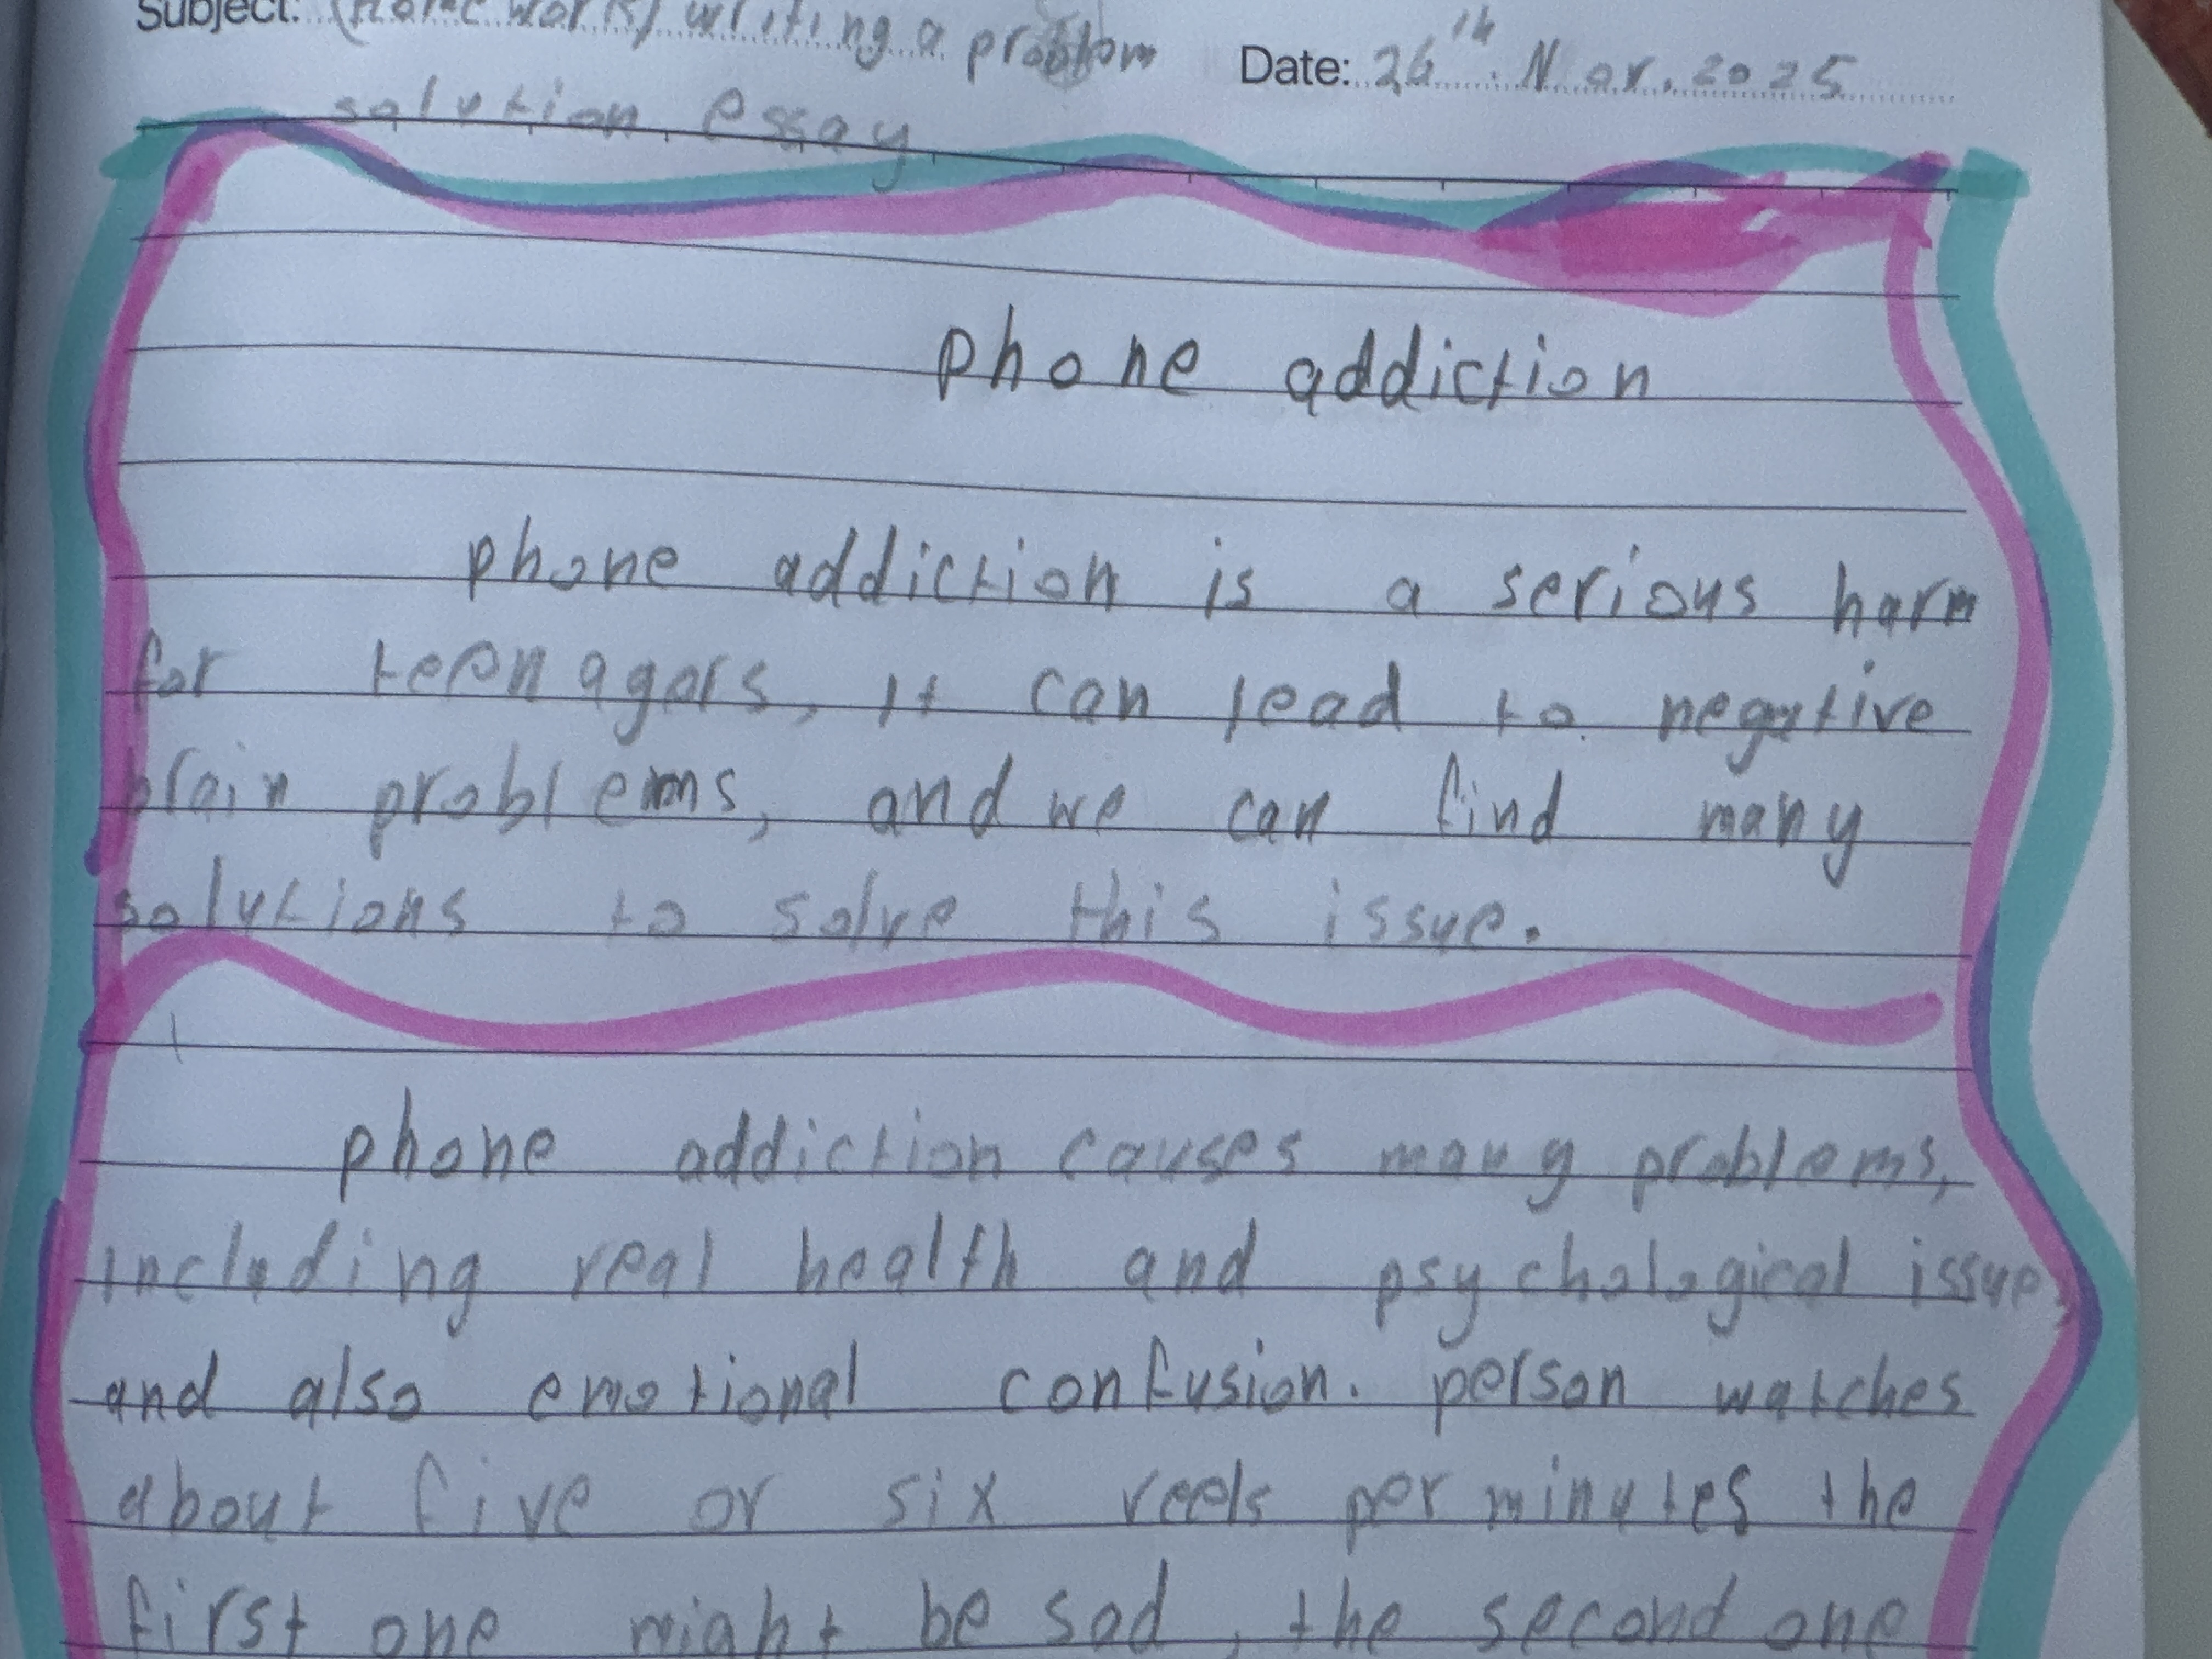 Subject: (Home work) writing a problem
Date: 26th. Nov. 2025
solution essay
phone addiction
phone addiction is a serious harm
for teenagers, it can lead to negative
brain problems, and we can find many
solutions to solve this issue.
phone addiction causes many problems,
including real health and psychological issue
and also emotional confusion. person watches
about five or six reels per minutes the
first one might be sad, the second one